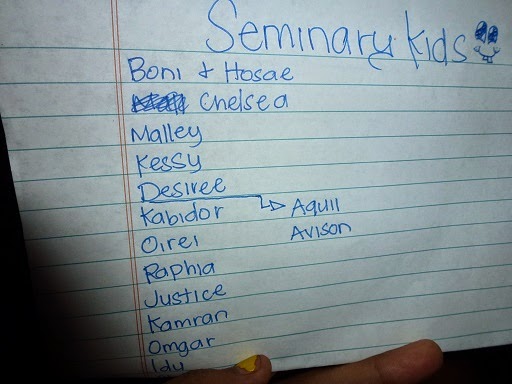 Seminary Kids
Boni & Hosae
Chelsea
Malley
Kessy
Desiree
Kabidor
Aquil
Avison
Oirei
Raphia
Justice
Kamran
Omgar
Idu